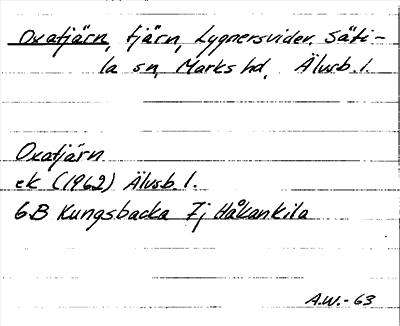 Oxatjärn, tjärn, Lygnersvider, Säti-
la sn, Marks hd, Älvsb. l.
Oxatjärn
ek (1962) Älvsb l.
6B Kungsbacka 7j Håkankila
A.W.-63